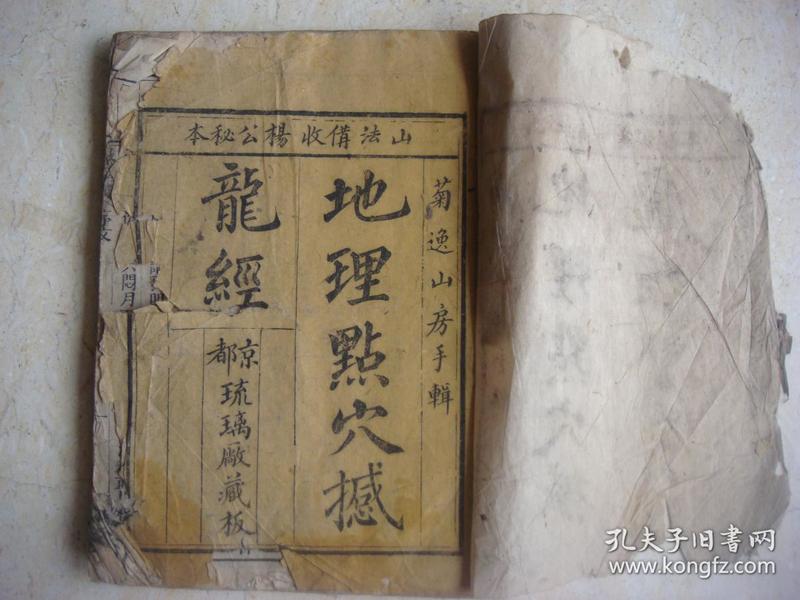 山法備收楊公秘本
菊逸山房手輯
地理點穴撼
龍經
京都
琉璃廠藏板
六悶月
孔夫子旧书网
www.kongfz.com